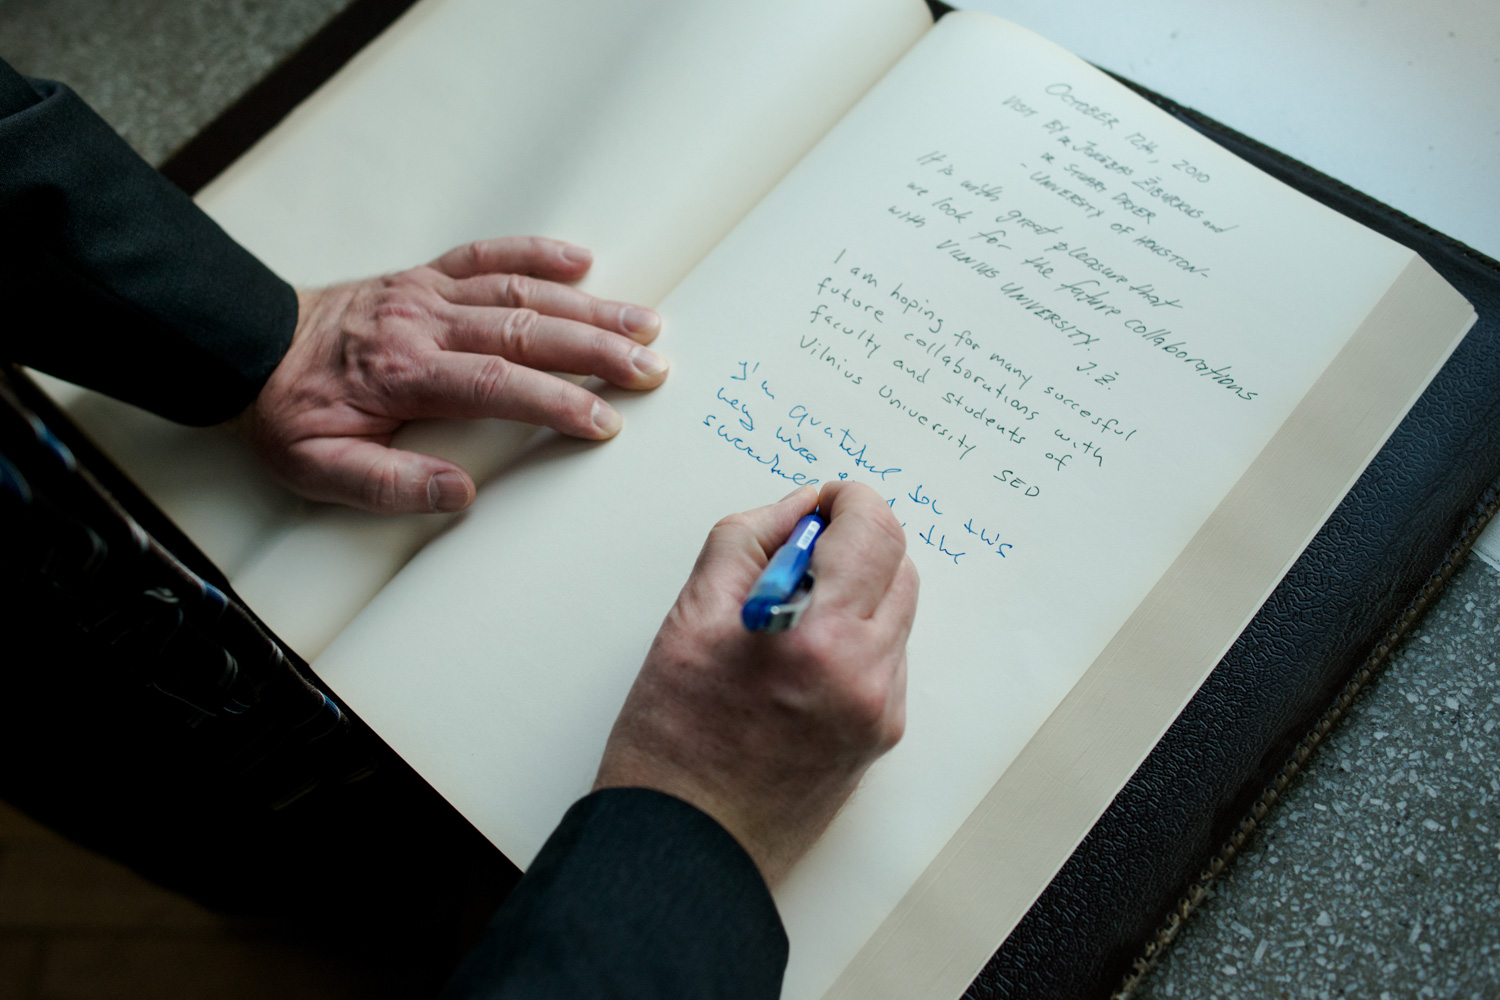 OCTOBER 12th, 2010
VISIT BY DR JOKŪBAS ŽIBURKUS and
DR STUART DRYER
- UNIVERSITY OF HOUSTON-
It is with great pleasure that
we look for the future collaborations
with VILNIUS UNIVERSITY.
J.Ž.
I am hoping for many succesful
future collaborations with
faculty and students of
Vilnius University SED
I'm gratefull for this
very nice the